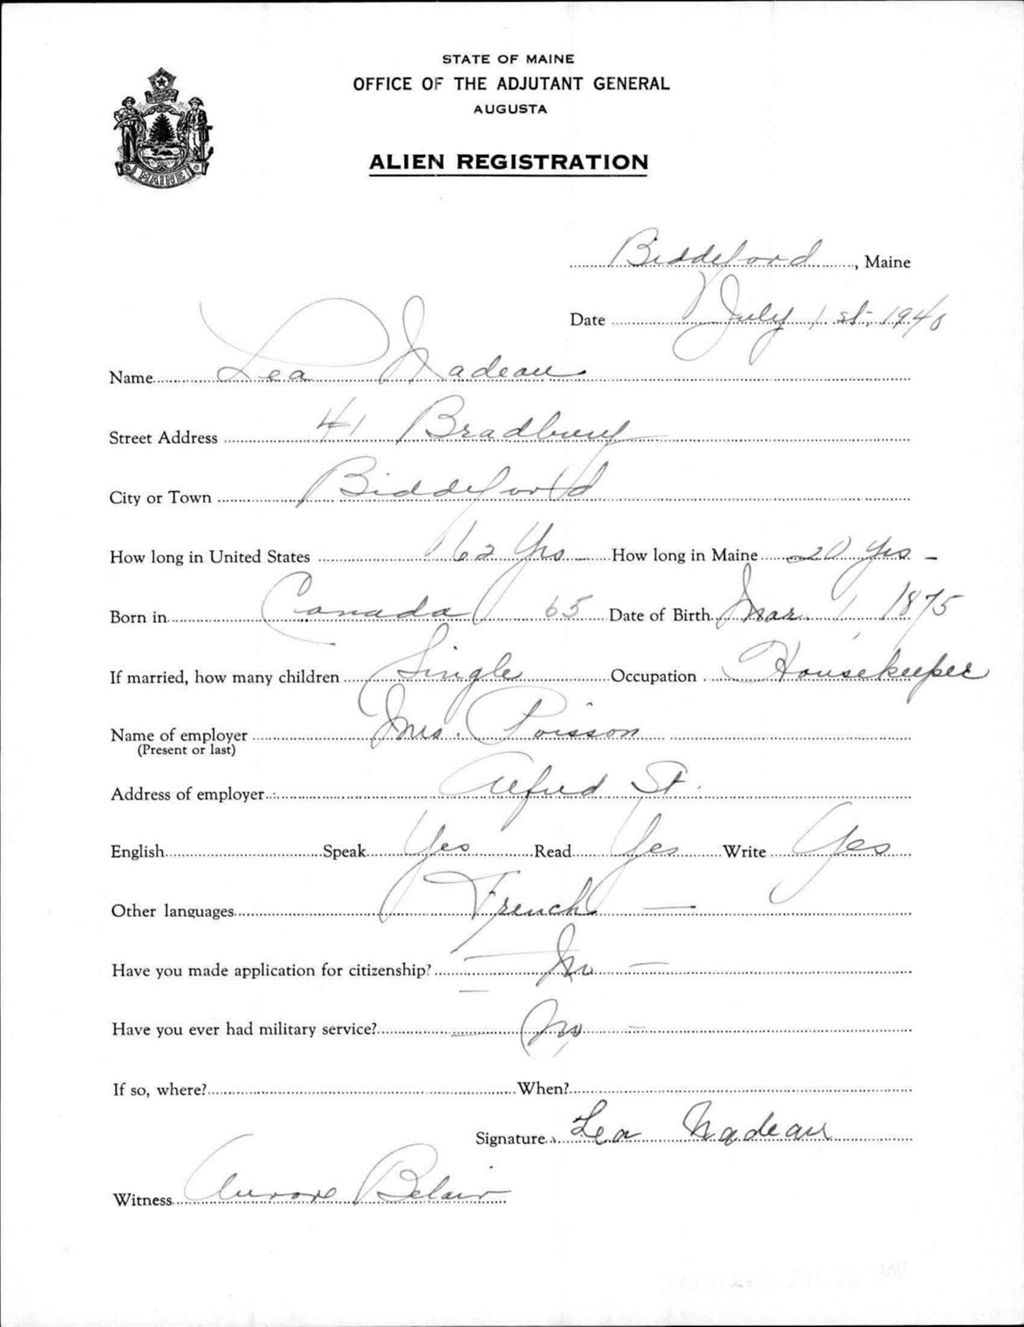 STATE OF MAINE
OFFICE OF THE ADJUTANT GENERAL
AUGUSTA
ALIEN REGISTRATION
MAINE
Biddeford, Maine
Date July 1 st, 1940
Name Lea Nadeau
Street Address 41 Bradbury
City or Town Biddeford
How long in United States 62 Yrs — How long in Maine 20 Yrs —
Born in Canada 65 Date of Birth Mar. 1, 1875
If married, how many children Single Occupation Housekeeper
Name of employer Mrs. Poisson
(Present or last)
Address of employer Alfred St.
English Speak Yes Read Yes Write Yes
Other languages French —
Have you made application for citizenship? — No —
Have you ever had military service? — No —
If so, where? When?
Signature Lea Nadeau
Witness Aurore Belair